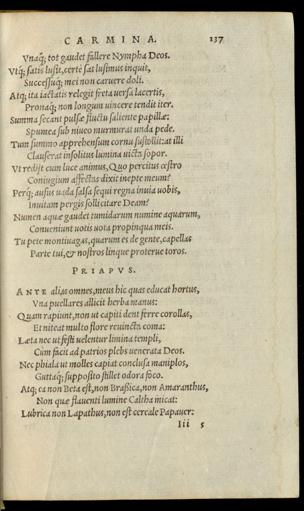 CARMINA. 137
Vnaq́; tot gaudet fallere Nympha Deos.
Vtq́; satis lusit, certè sat lusimus inquit,
Successuq́; mei non caruere doli.
Atq; ita iactatis relegit freta uersa lacertis,
Pronaq́; non longum uincere tendit iter.
Summa secant pulsæ fluctu saliente papillæ:
Spumea sub niueo murmurat unda pede.
Tum summo apprehensum cornu sustollitat illi
Clauserat insolitus lumina uicta sopor.
Vt redijt cum luce animus, Quo percitus œstro
Coniugium affectas dixit inepte meum?
Perq́; ausus uada salsa sequi regna inuia uobis,
Inuitam pergis sollicitare Deam?
Numen aquæ gaudet tumidarum numine aquarum,
Conueniunt uotis uota propinqua meis.
Tu pete montiuagas, quarum es de gente, capellas
Parte tui, & nostros linque proterue toros.
PRIAPVS.
ANTE alias omnes, meus hic quas educat hortus,
Vna puellares allicit herba manus:
Quam rapiunt, non ut capiti dent ferre corollas,
Et niteat multo flore reuincta coma:
Læta nec ut festi uelentur limina templi,
Cum facit ad patrios plebs uenerata Deos.
Nec phiala ut molles capiat conclusa maniplos,
Guttaq́; supposito stillet odora foco.
Atq; ea non Beta est, non Brassica, non Amaranthus,
Non quæ flauenti lumine Caltha micat:
Lubrica non Lapathus, non est cereale Papauer:
Iii 5